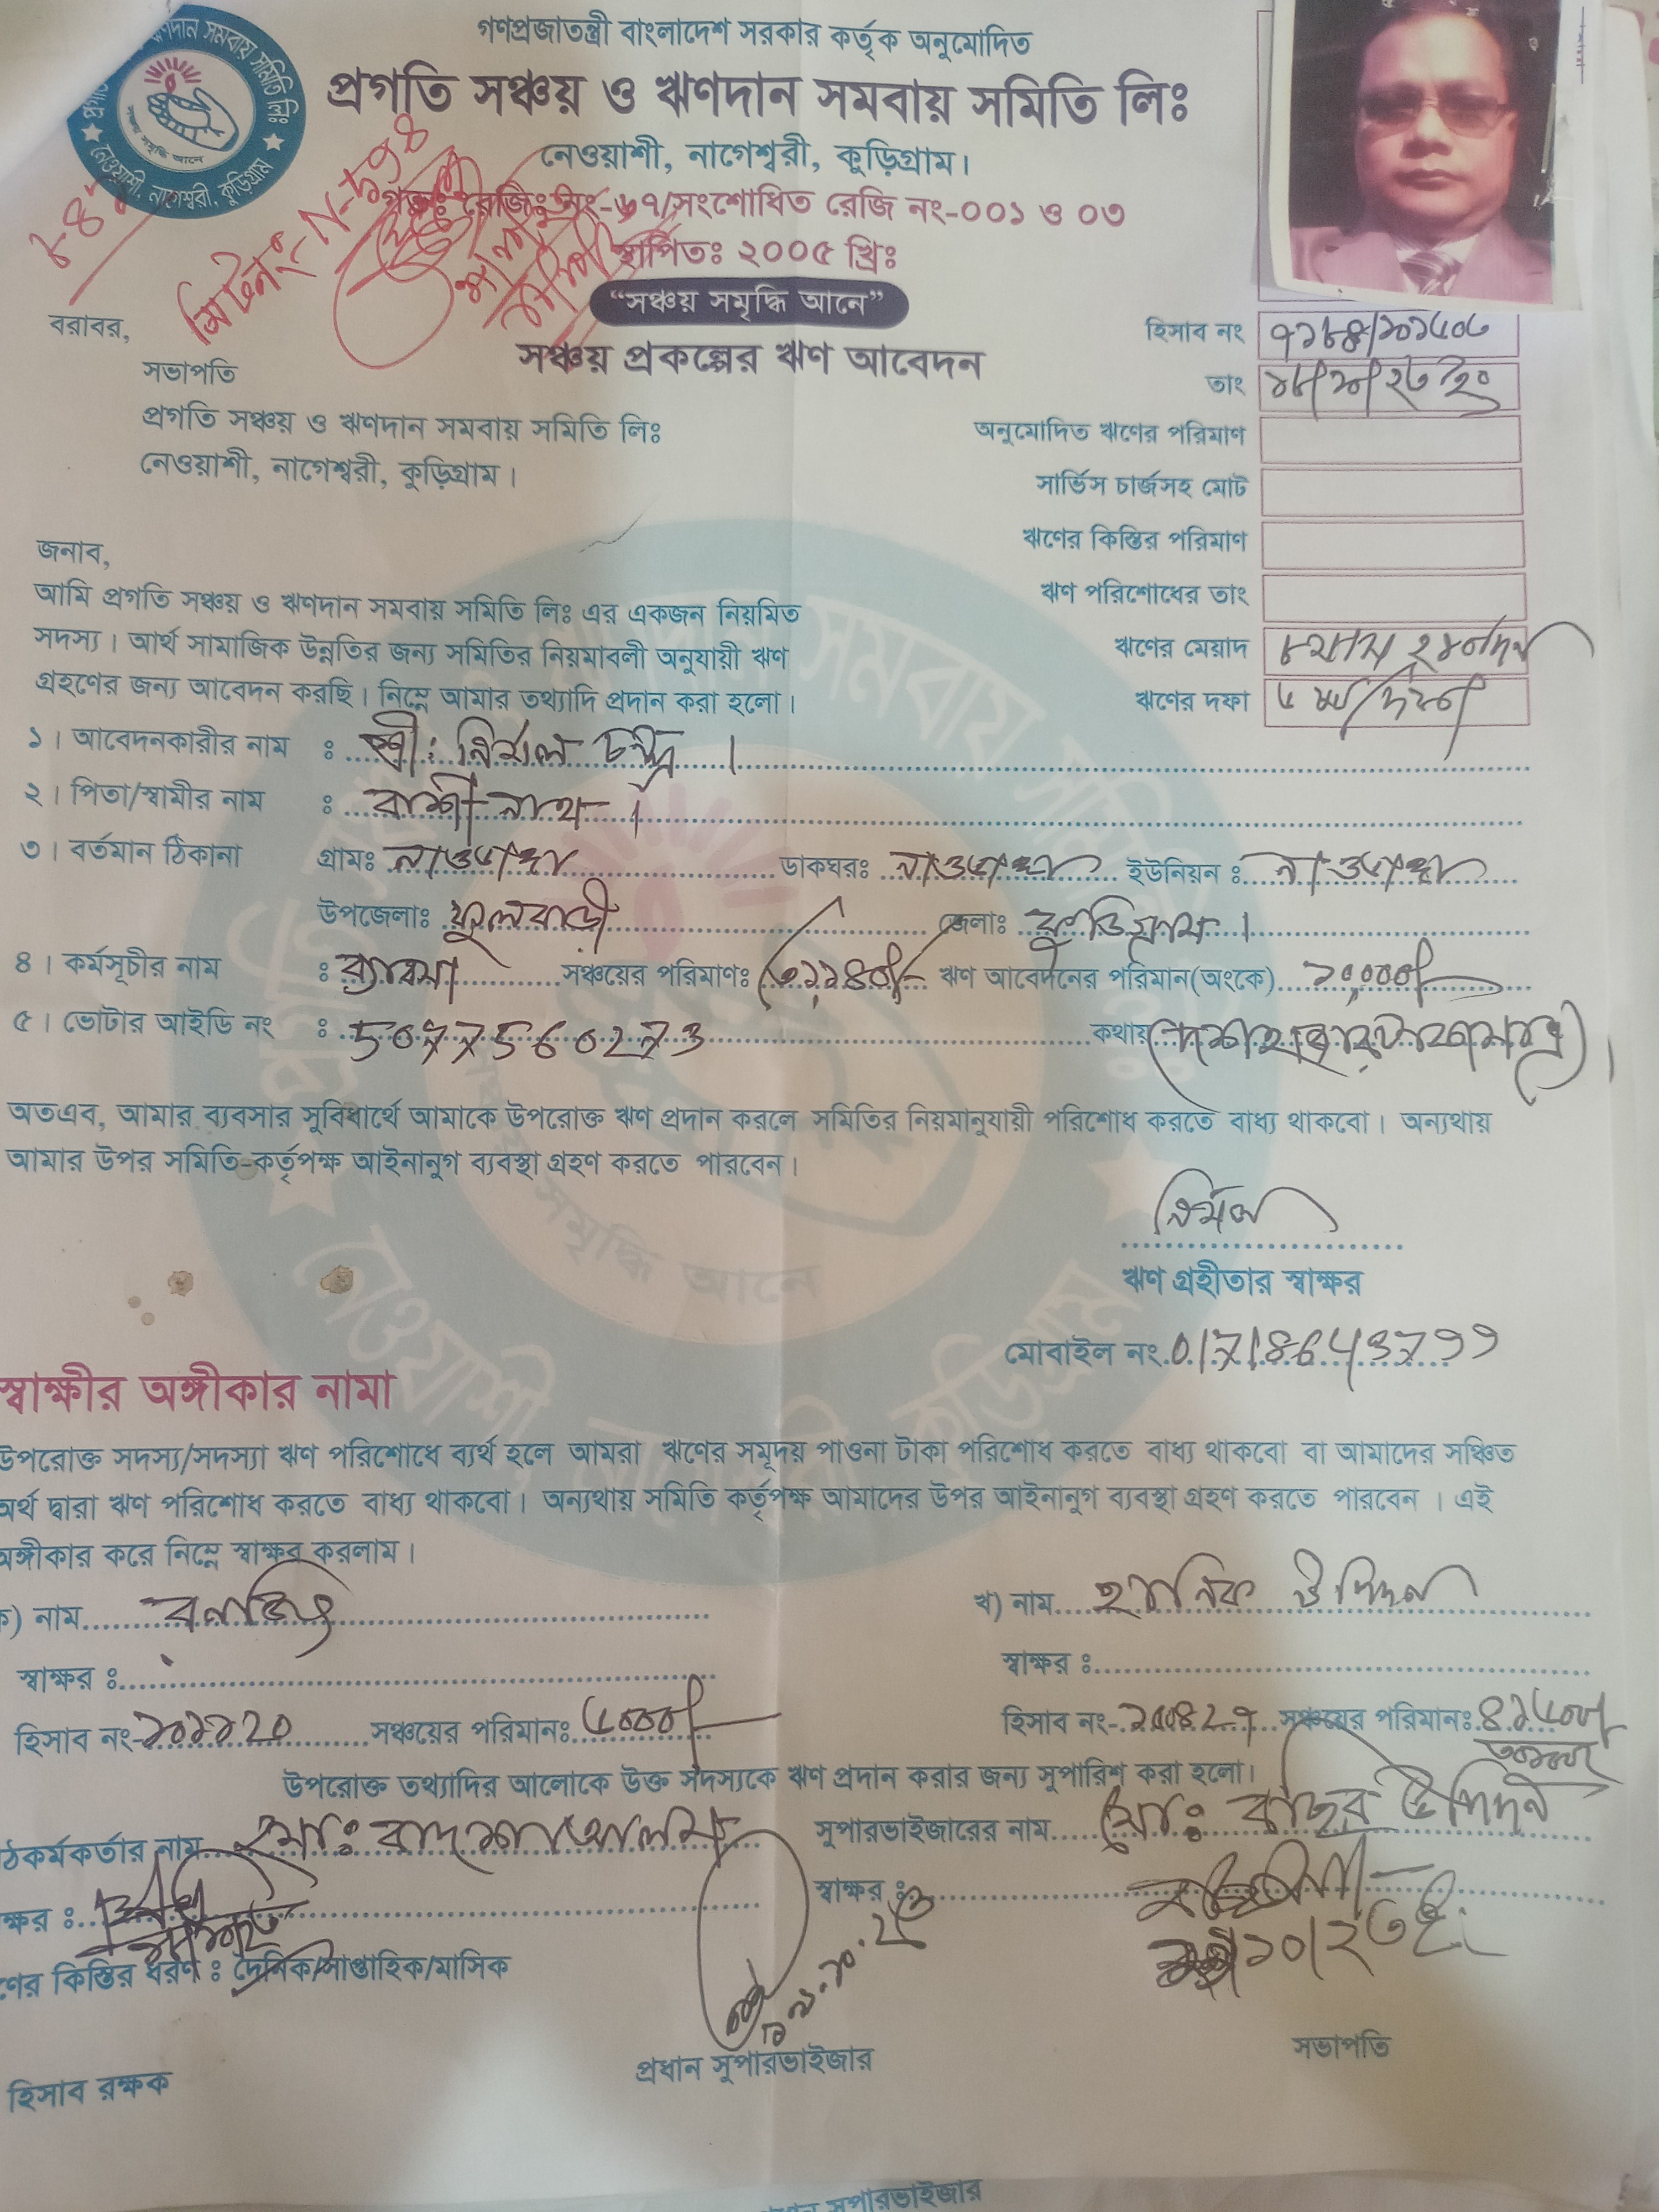 গণপ্রজাতন্ত্রী বাংলাদেশ সরকার কর্তৃক অনুমোদিত
প্রগতি সঞ্চয় ও ঋণদান সমবায় সমিতি লিঃ
নেওয়াশী, নাগেশ্বরী, কুড়িগ্রাম।
রেজিঃ নং-৬৭/সংশোধিত রেজি নং-০০১ ও ০৩
স্থাপিতঃ ২০০৫ খ্রিঃ
“সঞ্চয় সমৃদ্ধি আনে”
সঞ্চয় প্রকল্পের ঋণ আবেদন
বরাবর,
সভাপতি
প্রগতি সঞ্চয় ও ঋণদান সমবায় সমিতি লিঃ
নেওয়াশী, নাগেশ্বরী, কুড়িগ্রাম।
হিসাব নং
তাং ১৮/১০/২৩ ইং
অনুমোদিত ঋণের পরিমাণ
সার্ভিস চার্জসহ মোট
ঋণের কিস্তির পরিমাণ
ঋণ পরিশোধের তাং
ঋণের মেয়াদ
ঋণের দফা
জনাব,
আমি প্রগতি সঞ্চয় ও ঋণদান সমবায় সমিতি লিঃ এর একজন নিয়মিত
সদস্য। আর্থ সামাজিক উন্নতির জন্য সমিতির নিয়মাবলী অনুযায়ী ঋণ
গ্রহণের জন্য আবেদন করছি। নিম্নে আমার তথ্যাদি প্রদান করা হলো।
১। আবেদনকারীর নাম : শ্রী: নির্মল চন্দ্র।
২। পিতা/স্বামীর নাম : কাশী নাথ।
৩। বর্তমান ঠিকানা গ্রামঃ নাওডাঙ্গা ডাকঘরঃ নাওডাঙ্গা ইউনিয়ন : নাওডাঙ্গা
উপজেলাঃ ফুলবাড়ী জেলাঃ কুড়িগ্রাম।
৪। কর্মসূচীর নাম : ব্যাবসা সঞ্চয়ের পরিমাণঃ ঋণ আবেদনের পরিমান(অংকে) ১০,০০০/-
৫। ভোটার আইডি নং : 5077560273 কথায় (দশ হাজার টাকা মাত্র)।
অতএব, আমার ব্যবসার সুবিধার্থে আমাকে উপরোক্ত ঋণ প্রদান করলে সমিতির নিয়মানুযায়ী পরিশোধ করতে বাধ্য থাকবো। অন্যথায়
আমার উপর সমিতি-কর্তৃপক্ষ আইনানুগ ব্যবস্থা গ্রহণ করতে পারবেন।
নির্মল
ঋণ গ্রহীতার স্বাক্ষর
মোবাইল নং
স্বাক্ষীর অঙ্গীকার নামা
উপরোক্ত সদস্য/সদস্যা ঋণ পরিশোধে ব্যর্থ হলে আমরা ঋণের সমূদয় পাওনা টাকা পরিশোধ করতে বাধ্য থাকবো বা আমাদের সঞ্চিত
অর্থ দ্বারা ঋণ পরিশোধ করতে বাধ্য থাকবো। অন্যথায় সমিতি কর্তৃপক্ষ আমাদের উপর আইনানুগ ব্যবস্থা গ্রহণ করতে পারবেন। এই
অঙ্গীকার করে নিম্নে স্বাক্ষর করলাম।
ক) নাম রনজিৎ খ) নাম
স্বাক্ষর : স্বাক্ষর :
হিসাব নং- ১০১১২০ সঞ্চয়ের পরিমানঃ ৫০০০/- হিসাব নং- সঞ্চয়ের পরিমানঃ
উপরোক্ত তথ্যাদির আলোকে উক্ত সদস্যকে ঋণ প্রদান করার জন্য সুপারিশ করা হলো।
ঠকর্মকর্তার নাম মোঃ বাদশা আলম সুপারভাইজারের নাম মোঃ
ক্ষর : স্বাক্ষর :
ণের কিস্তির ধরণ : দৈনিক/সাপ্তাহিক/মাসিক
হিসাব রক্ষক
প্রধান সুপারভাইজার
সভাপতি
সুপারভাইজার